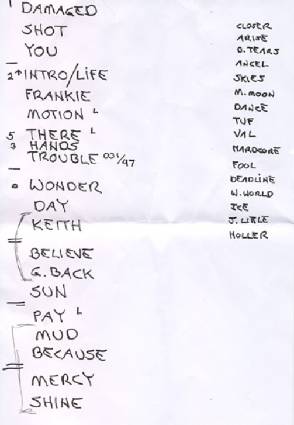 1 DAMAGED
SHOT
YOU
2 + INTRO/LIFE
FRANKIE
MOTION L
5 THERE L
HANDS
TROUBLE 001/47
WONDER
DAY
KEITH
BELIEVE
G. BACK
SUN
PAY L
MUD
BECAUSE
MERCY
SHINE
CLOSER
ARISE
D. TEARS
ANGEL
SKIES
M. MOON
DANCE
TUF
VAL
HARDCORE
FOOL
DEADLINE
W. WORLD
ICE
HOLLER